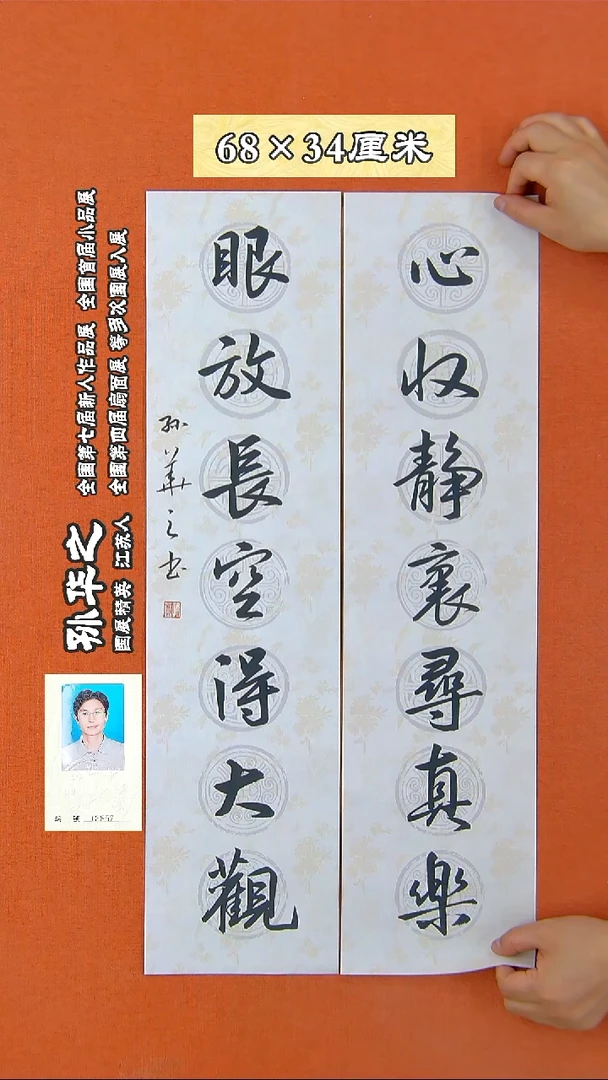 68×34厘米
心收静裏尋真樂
眼放長空得大觀
孙華之书
全国第七届新人作品展 全国首届小品展
全国第四届扇面展 等多次国展入展
孙华之
国展精英 江苏人